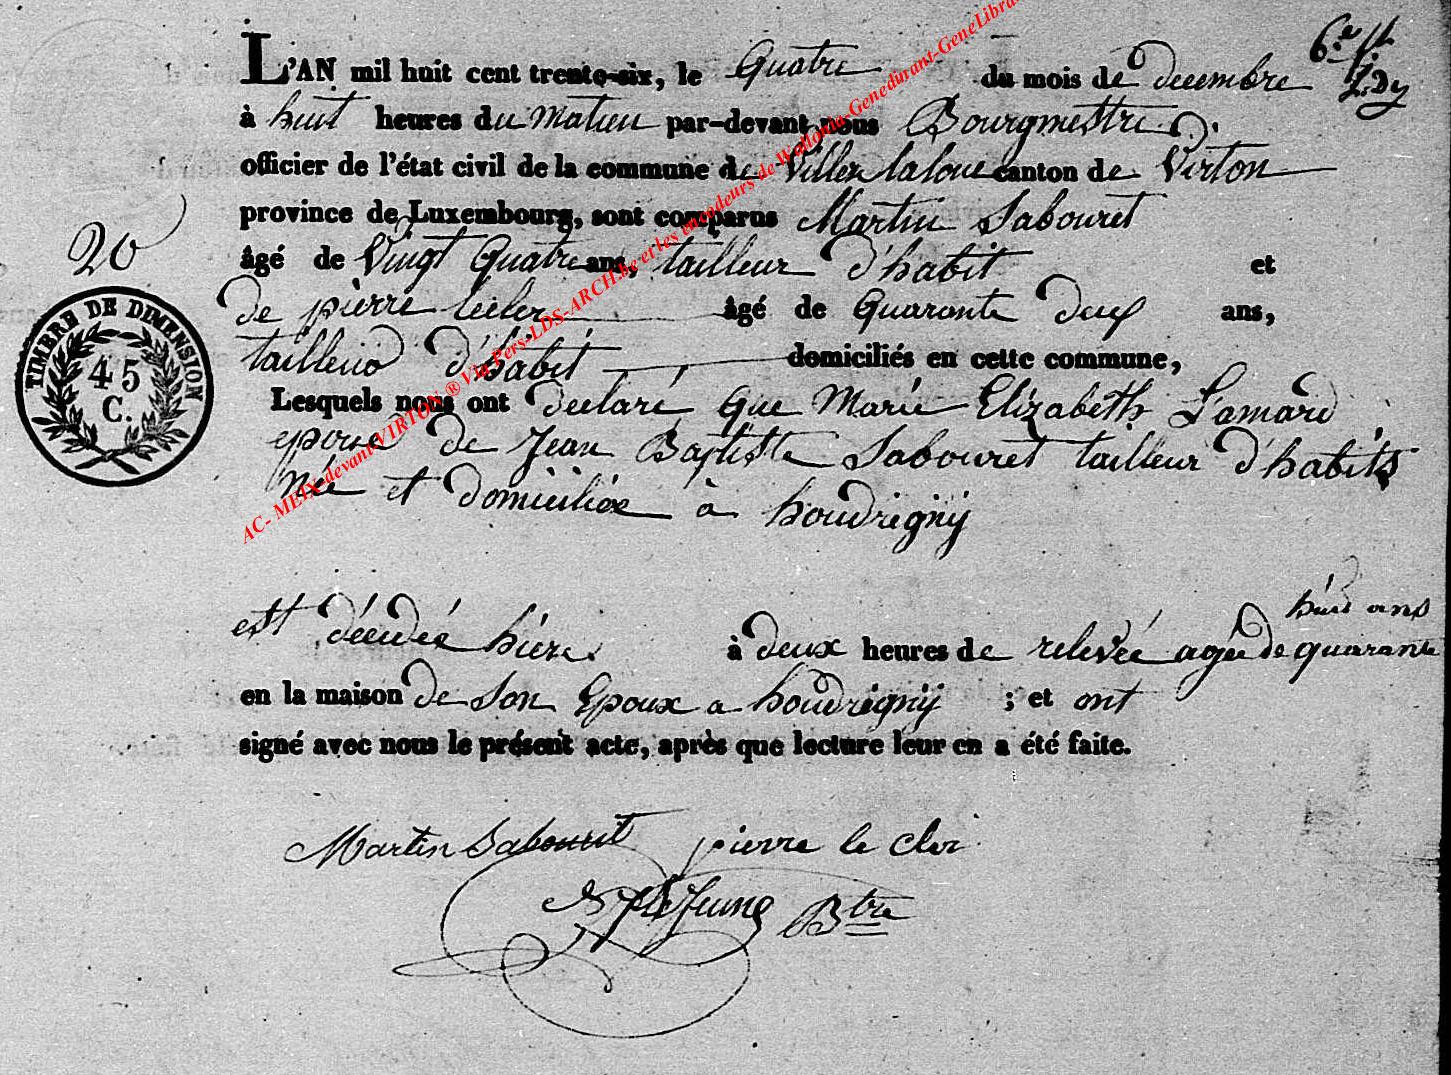 L'AN mil huit cent trente-six, le Quatre du mois de decembre
à huit heures du Matieu par-devant nous Bourgmestre
officier de l'état civil de la commune de Viller laloue canton de Virton
province de Luxembourg, sont comparus Martin Sabouret
âgé de Vingt Quatre ans, tailleur d'habit et
de pierre lecler âgé de Quarante deux ans,
tailleur d'habit domiciliés en cette commune,
Lesquels nous ont declaré que Marie Elizabeth Lamard
epouse de Jean Baptiste Sabouret tailleur d'habits
Née et domiciliée à houdrignÿ
huit ans
est décédée hière à deux heures de relevée agée de quarante
en la maison de Son Epoux a houdrignÿ ; et ont
signé avec nous le présent acte, après que lecture leur en a été faite.
Martin Sabouret pierre le cler
LeJeune Btre
20
TIMBRE DE DIMENSION
45
C.
AC- MEIX-devant-VIRTON ® Via Pers-LDS-ARCH.be et les encodeurs de Wallonia-Genedurant-GeneLibra